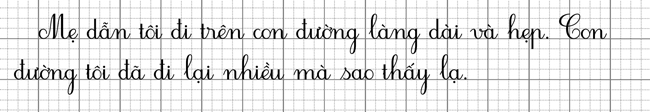 Mẹ dẫn tôi đi trên con đường làng dài và hẹp. Con
đường tôi đã đi lại nhiều mà sao thấy lạ.